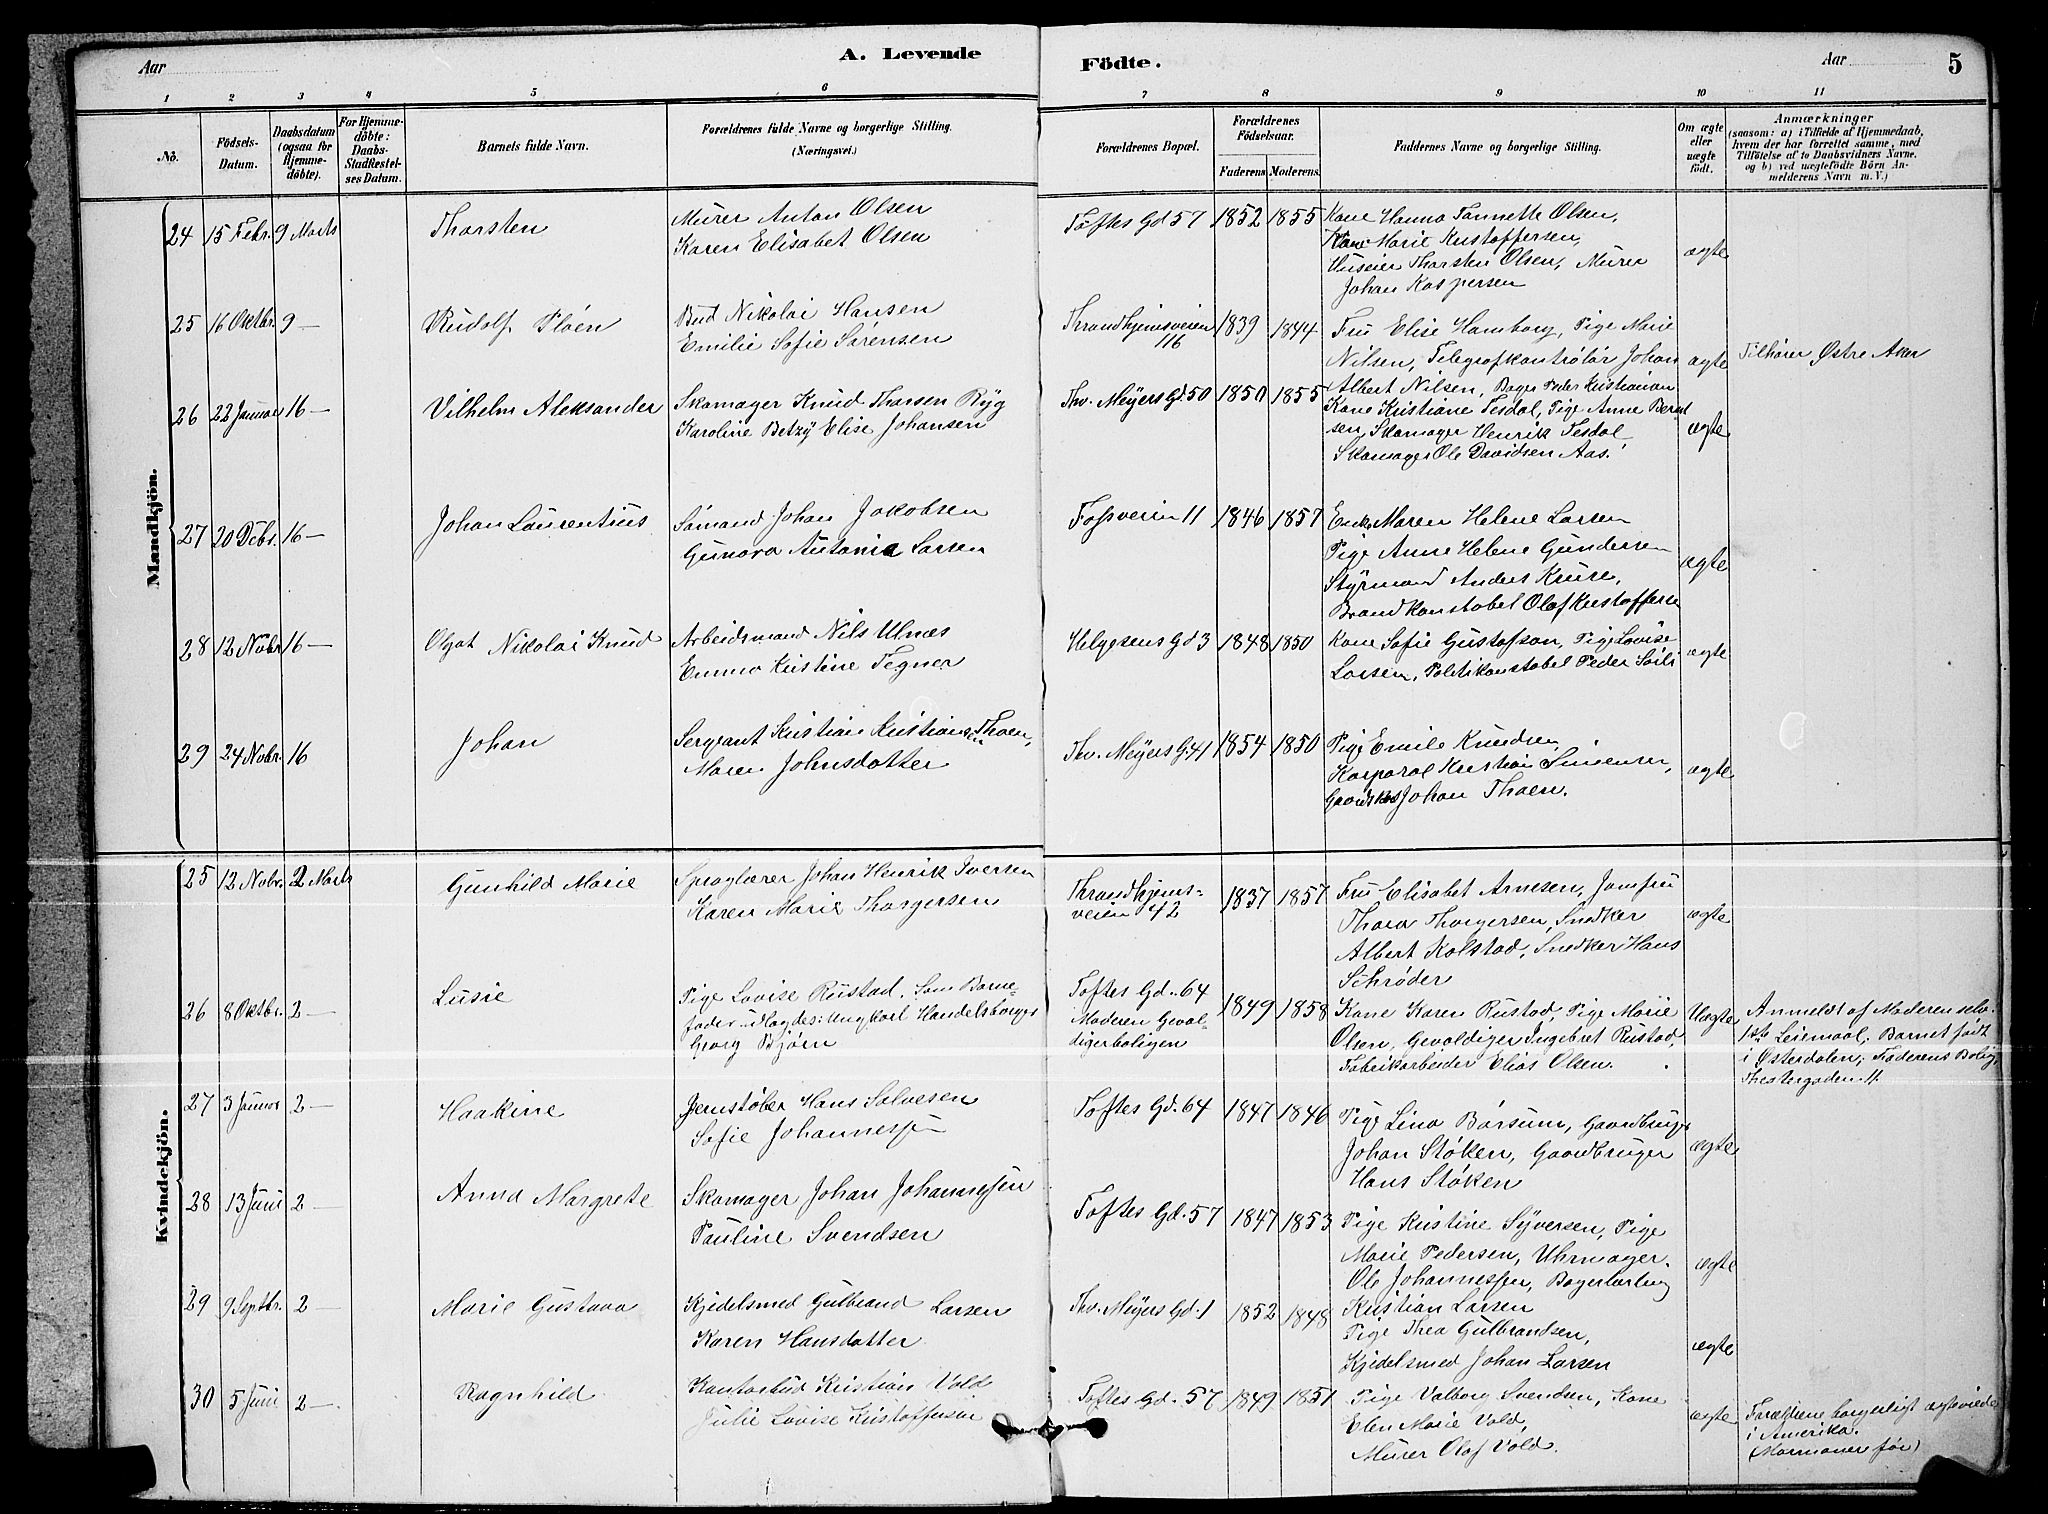 Aar
A. Levende
Födte.
Aar
5
1 2 3 4 5 6 7 8 9 10 11
No.
Födsels-Datum.
Daabsdatum (ogsaa for Hjemme-döbte).
For Hjemme-döbte: Daabs-Stadfæstel-ses Datum.
Barnets fulde Navn.
Forældrenes fulde Navne og borgerlige Stilling. (Næringsvei.)
Forældrenes Bopæl.
Forældrenes Födselsaar.
Faderens Moderens.
Faddernes Navne og borgerlige Stilling.
Om ægte eller uægte födt.
Anmærkninger
(saasom: a) i Tilfælde af Hjemmedaab, hvem der har forrettet samme, med Tilföielse af to Daabsvidners Navne, og b) ved uægtefödte Börn An-melderens Navn m. V.)
Mandkjön.
24 15 Febr. 9 Marts Thorsten
Murer Anton Olsen
Karen Elisabet Olsen
Toftes Gd 57 1852 1855
Kone Hanna Tannette Olsen,
Kone Marie Kristoffersen,
Huseier Thorsten Olsen, Murer
Johan Kaspersen
ægte
25 16 Oktbr. 9 — Rudolf Pløen
Bud Nikolai Hansen
Emilie Sofie Sørensen
Throndhjemsveien
116
1839 1844
Fru Elise Hamborg, Pige Marie
Nilsen, Telegrafkontrølør Johan
Albert Nilsen, Bager Peder Kristiansen
ægte
Tilhører Østre Aker
26 22 Januar 16 — Vilhelm Aleksander
Skomager Knud Thorsen Ryg
Karoline Betzy Elise Johansen
Thv. Meyers Gd 50 1850 1855
Kone Kristiane Tesdal, Pige Anne Bernt
sen, Skomager Henrik Tesdal
Skomager Ole Davidsen Aas.
ægte
27 20 Dcbr. 16 — Johan Laurentius
Sømand Johan Jakobsen
Gunora Antonie Larsen
Fossveien 11 1846 1857
Enke Maren Helene Larsen
Pige Anne Helene Gundersen
Styrmand Anders Kruse,
Brandkonstabel Olaf Kristoffersen
ægte
28 12 Novbr 16 — Nikolai Knud
Arbeidsmand Nils Ulnæs
Emma Kristine Tegner
Helgesens Gd 3 1848 1850
Kone Sofie Gustafson, Pige Lovise
Larsen, Politikonstabel Peder
ægte
29 24 Novbr. 16 Johan
Sergeant Kristian Kristiansen Thoen,
Maren Johnsdatter
Thv. Meyers G. 41 1854 1850
Pige Emile Knudsen
Korporal Kristian Simensen,
Johan Thoen.
ægte
Kvindekjön.
25 12 Novbr. 2 Marts Gunhild Marie
Sproglærer Johan Henrik Iversen
Karen Marie Thorgersen
Throndhjems-
veien 42
1837 1857
Fru Elisabet Arnesen, Jomfru
Thora Thorgersen, Snedker
Albert Kolstad, Snedker Hans
Schrøder
ægte
26 8 Oktbr. 2 — Lusie
Pige Lovise Rustad. Som Barne-
fader udlagdes: Ungkarl Handelsborger
Georg Bjørn
Toftes Gd. 64
Moderen Geval-
digerboligen
1849 1858
Kone Karen Rustad, Pige Marie
Olsen, Gevaldiger Ingebret Rustad,
Fabrikarbeider Elias Olsen.
Uægte
Anmeldt af Moderen selv.
1ste Leiemaal; Barnet født
i Østerdalen; Faderens Bolig,
Thestergaden 11.
27 3 Januar 2 — Haakine
Jernstøber Hans Salvesen
Sofie Johannessen
Toftes Gd. 64 1847 1846
Pige Lina Børsum, Gaardbruger
Johan Støken, Gaardbruger
Hans Støken
ægte
28 13 Juni 2 — Anna Margrete
Skomager Johan Johannessen
Pauline Svendsen
Toftes Gd. 57 1847 1853
Pige Kristine Syversen, Pige
Marie Pedersen, Uhrmager
Ole Johannessen, Bagerlærling
Kristian Larsen
ægte
29 9 Septbr. 2 — Marie Gustava
Kjedelsmed Gulbrand Larsen
Karen Hansdatter
Thv. Meyers Gd. 1 1852 1848
Pige Thea Gulbrandsen,
Kjedelsmed Johan Larsen
ægte
30 5 Juni 2 — Ragnhild
Kontorbud Kristian Vold
Julie Lovise Kristoffersen
Toftes Gd. 57 1849 1851
Pige Valborg Svendsen, Kone
Elen Marie Vold,
Murer Olaf Vold.
ægte
Forældrene borgerligt ægteviede
i Amerika.
(Mormoner før)